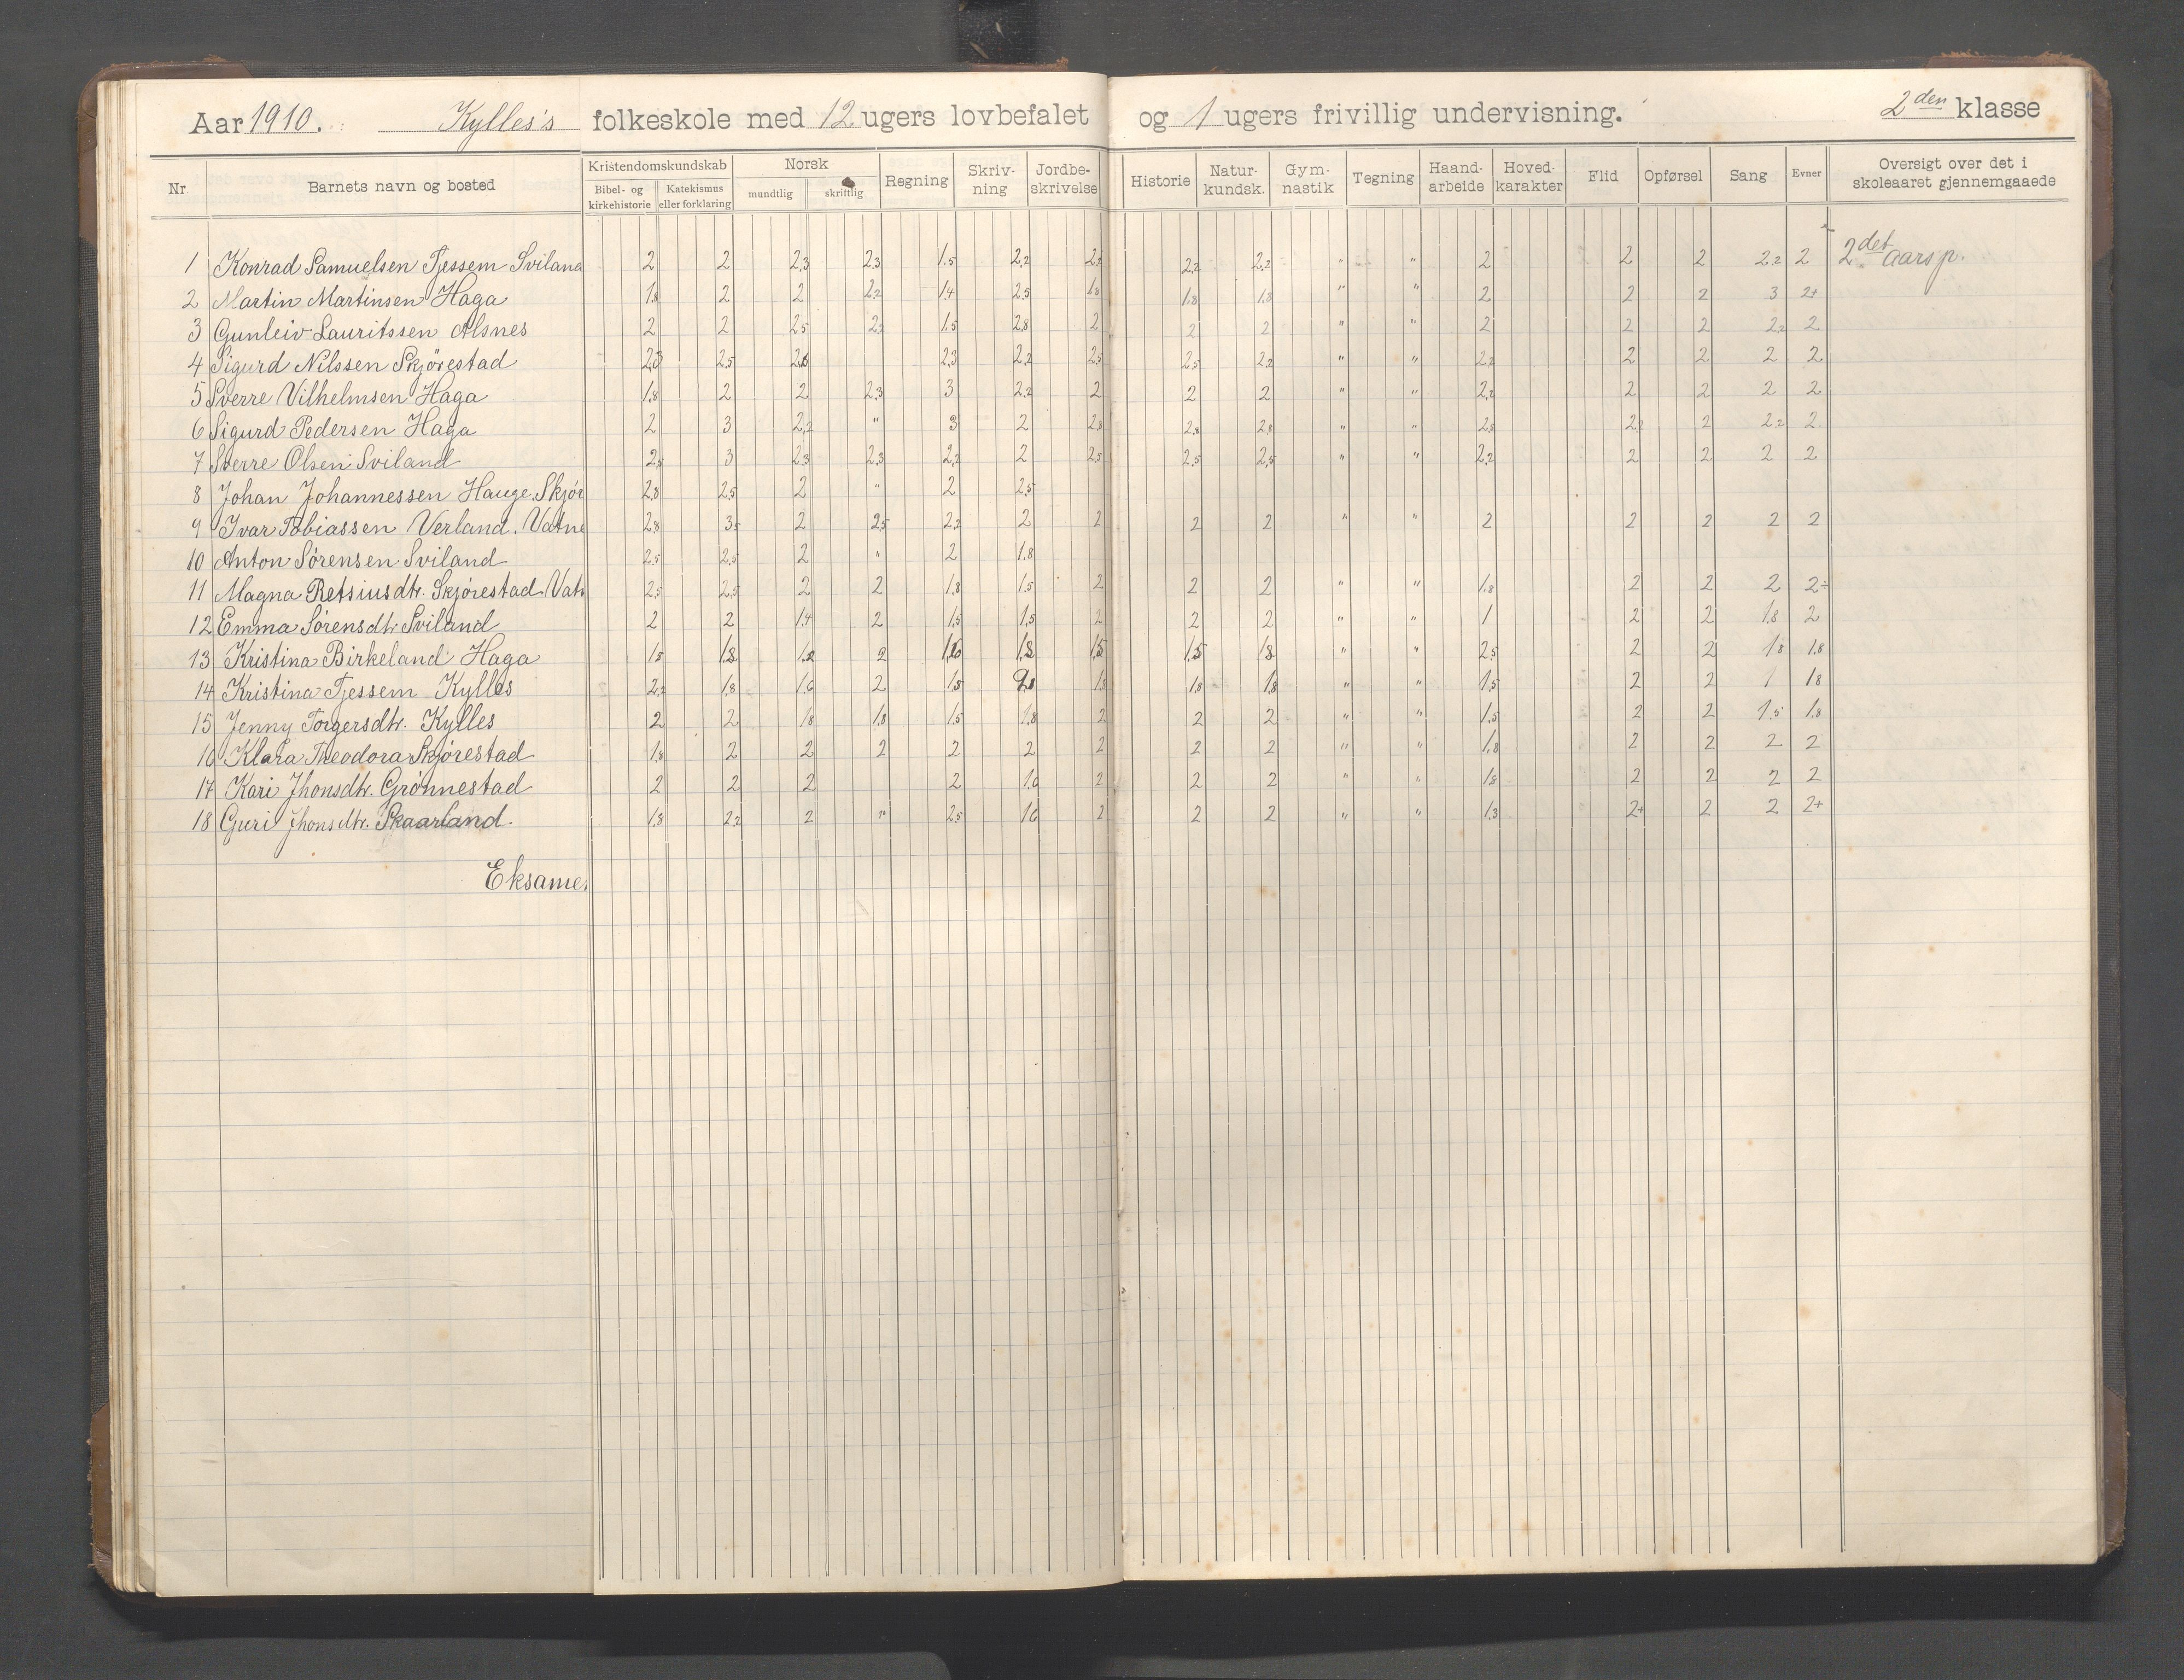 Aar 1910. Kylles's folkeskole med 12 ugers lovbefalet og 1 ugers frivillig undervisning. 2den klasse
Nr. Barnets navn og bosted Kristendomskundskab Bibel- og kirkehistorie Katekismus eller forklaring Norsk mundtlig skriftlig Regning Skriv-ning Jordbe-skrivelse Historie Natur-kundsk. Gym-nastik Tegning Haand-arbeide Hoved-karakter Flid Opførsel Sang Evner Oversigt over det i skoleaaret gjennemgaaede
1 Konrad Samuelsen Tjessem Sviland 2 2 2,3 2,3 1.5 2,2 2,2 2,2 2,2 " " 2 2 2 2,2 2 2det aarsp.
2 Martin Martinsen Haga 1,8 2 2 2,2 1,4 2,5 1,8 1,8 1,8 " " 2 2 2 3 2+
3 Gunleiv Lauritssen Alsnes 2 2 2,5 2,2 1,5 2,8 2 2 2 " " 2 2 2 2,2 2
4 Sigurd Nilssen Skjörestad 2,3 2,5 2,6 2,3 2,2 2,5 2,5 2,2 " " 2,2 2 2 2 2
5 Sverre Vilhelmsen Haga 1,8 2 2 2,3 3 2,2 2 2 2 " " 2,2 2 2 2 2
6 Sigurd Pedersen Haga 2 3 2,2 " 3 2 2,8 2,8 2,8 " " 2,5 2,2 2 2,2 2
7 Sverre Olsen Sviland 2,5 3 2,3 2,3 2,2 2 2,5 2,5 2,5 " " 2,2 2 2 2 2
8 Johan Johannessen Hauge. Skjør 2,8 2,5 2 " 2 2,5
9 Ivar Tobiassen Verland. Vatne 2,8 3,5 2 2,5 2,2 2 2 2 2 " " 2 2 2 2 2
10 Anton Sörensen Sviland 2,5 2,5 2 " 2 1.8
11 Magna Retsiusdtr. Skjørestad Vatn 2,5 2,5 2 2 1,8 1,5 2 2 2 " " 1,8 2 2 2 2÷
12 Emma Sörensdtr Sviland 2 2 1,4 2 1,5 1,5 2 2 2 " " 1 2 2 1.8 2
13 Kristina Birkeland Haga 1,8 1,8 1,2 2 1,6 1,8 1,5 1,5 1,8 " " 2,5 2 2 1,8 1,8
14 Kristina Tjessem Kylles 2,2 1,8 1,6 2 1,5 2 1,8 1,8 1,8 " " 1,5 2 2 1 1,8
15 Jenny Torgersdtr. Kylles 2 2 1,8 1,8 1,5 1,8 2 2 2 " " 1,5 2 2 1,5 1,8
16 Klara Theodora Skjörestad 1,8 2 2 2 2 2 2 2 2 " " 1,8 2 2 2 2
17 Kari Jhonsdtr. Grönnestad 2 2 2 2 1.6 2 2 2 " " 1,8 2 2 2 2
18 Guri Jhonsdtr. Skaarland. 1,8 2,2 2 " 2,5 1,6 2 2 2 " " 1,3 2+ 2 2 2+
Eksamen